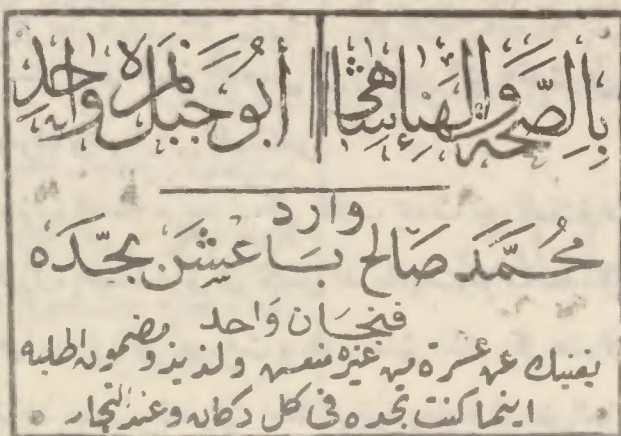 بِالصِّحَّة وَالهَنا شاهي
أبُو جَبَل نمرَه واحِد
وارد
مُحَمَّد صَالح بَاعيشَن بجدَّه
فنجَان وَاحد
يغنيك عن عشرة من غيره منعش ولذيذ ومضمون اطلبه
اينما كنت تجده فى كل دكان وعند التجار